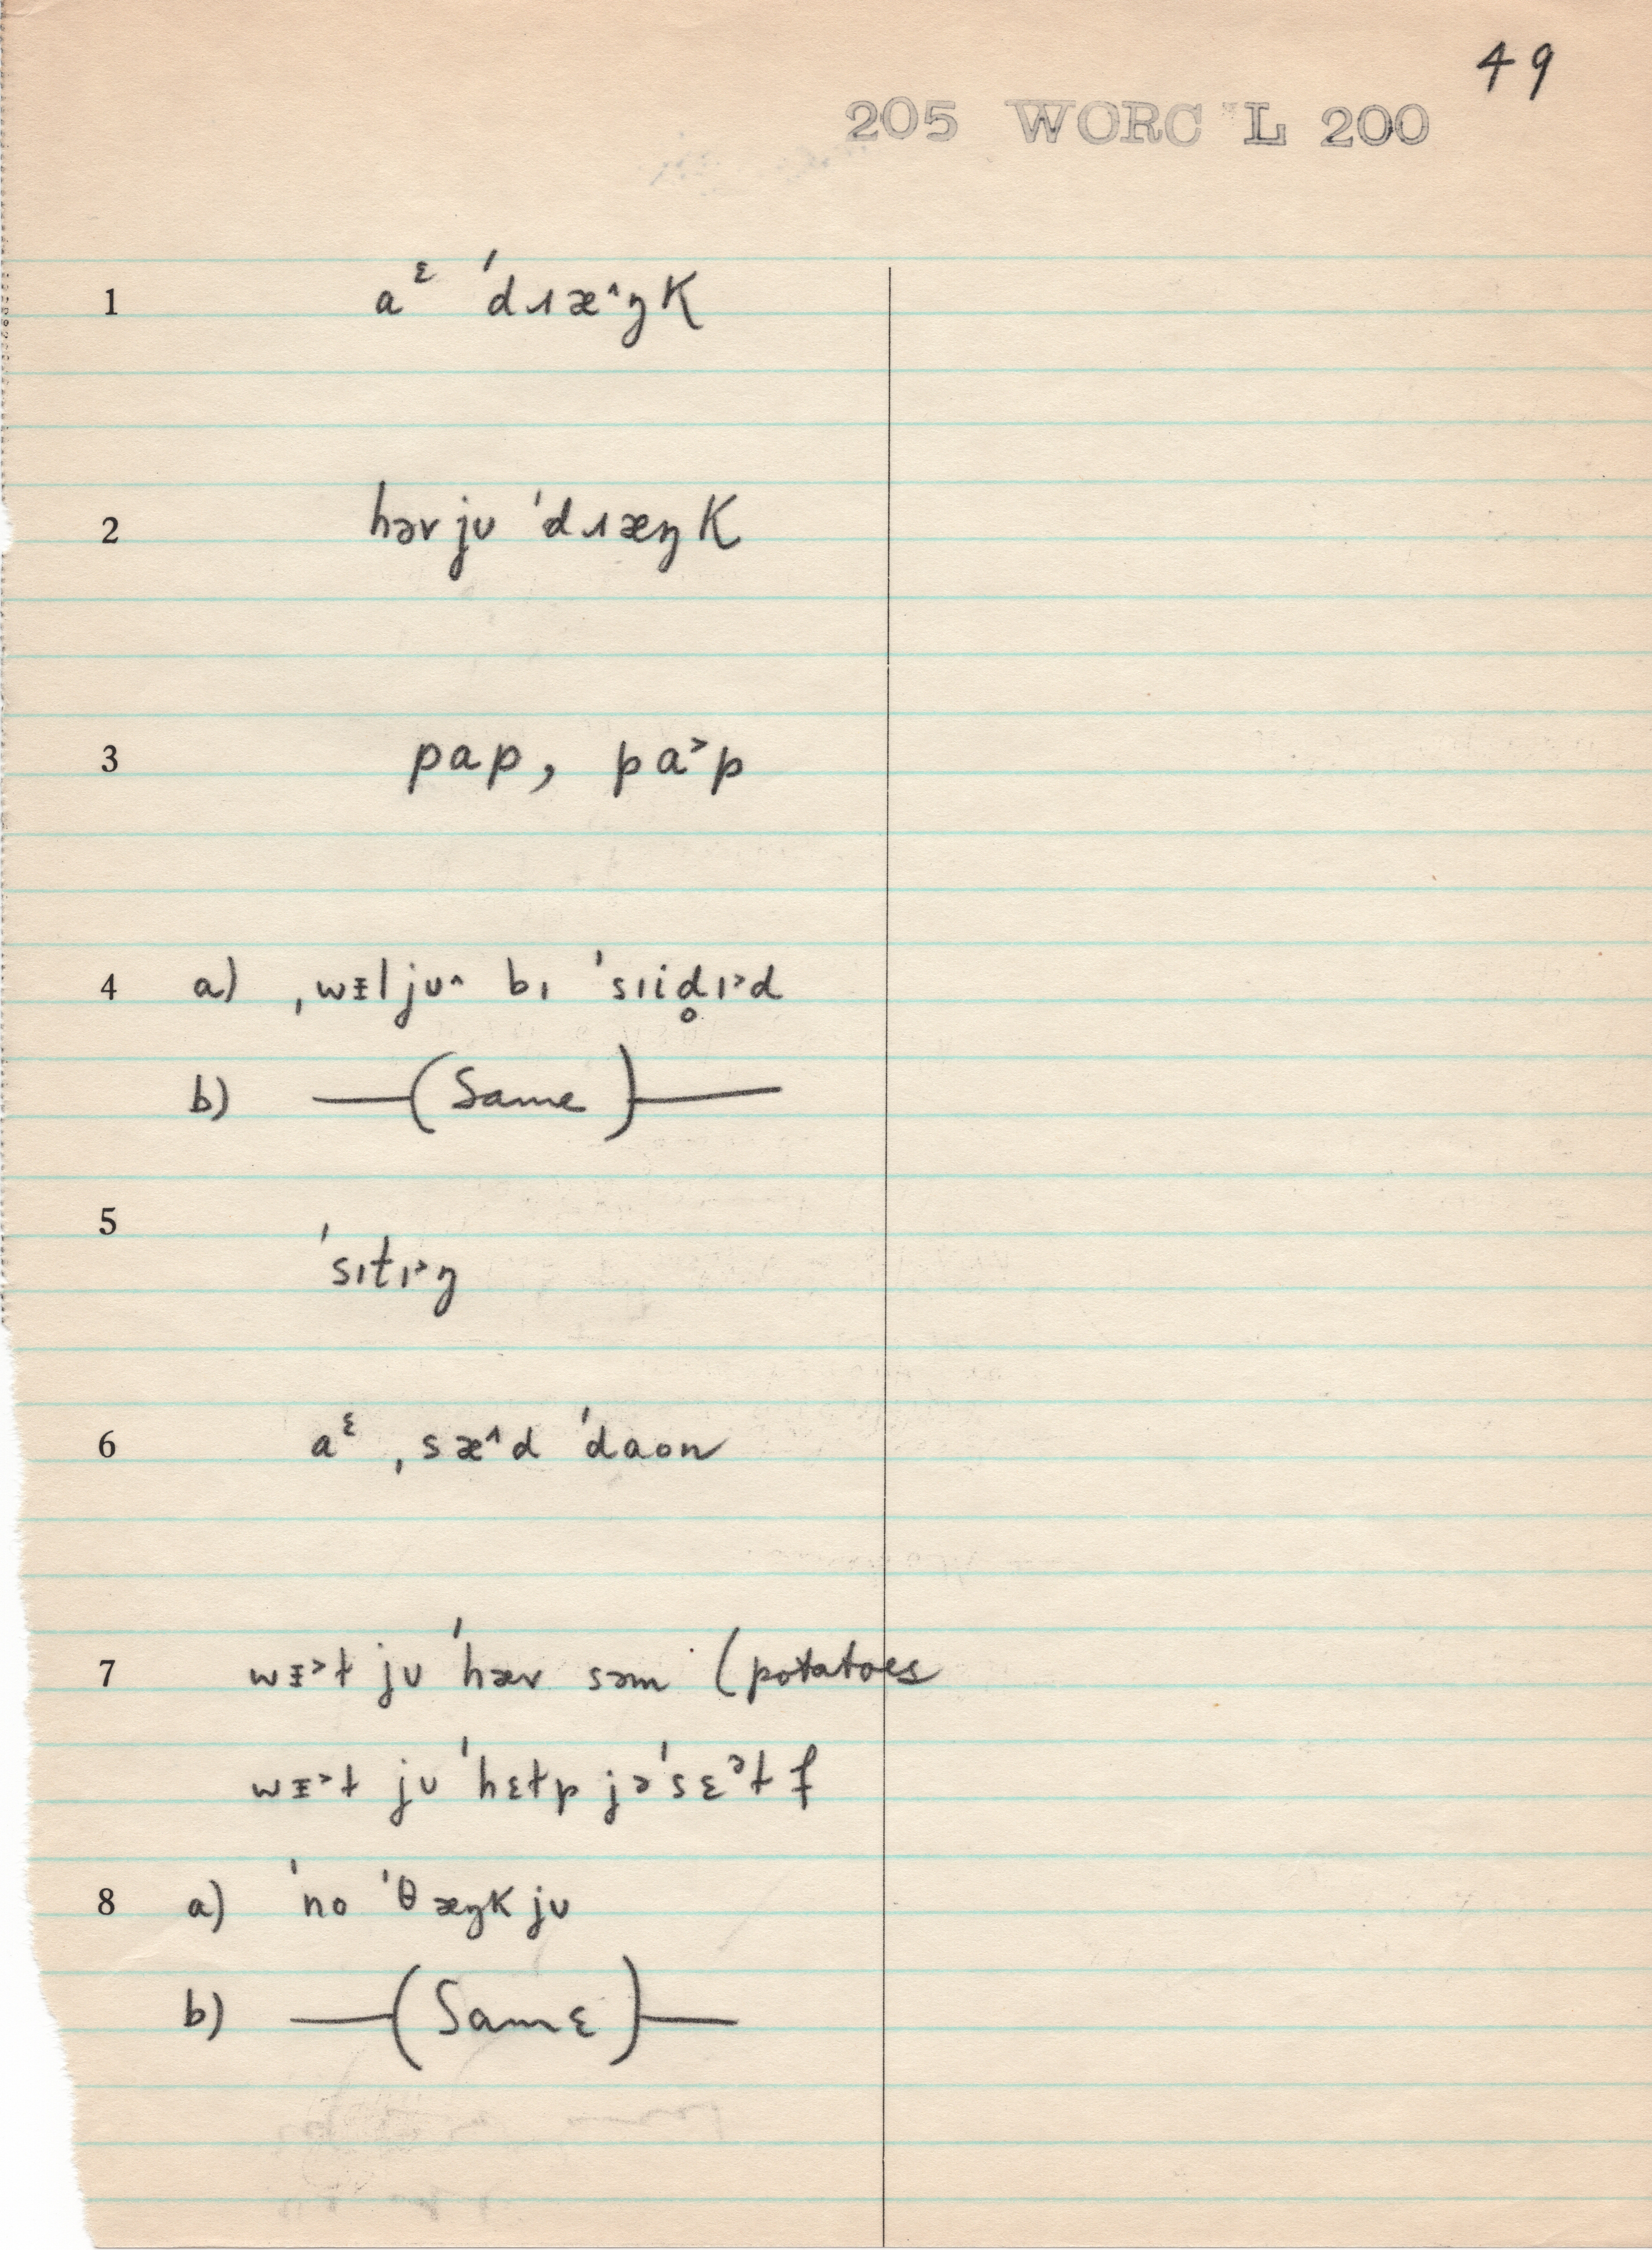 49
205 WORC L 200
1 aᵋ ˈdɹæ^ŋk
2 həv jʊ ˈdɹæŋk
3 pap, pa˃p
4 a) ˌwɪ̵l jʊ^ bɪ ˈsɪid̥ɪ˃d
b) —(Same)—
5 ˈsɪtɪ˃ŋ
6 aᵋ ˌsæ^d ˈdaon
7 wɪ̵˃ɫ jʊ ˈhæv səm (potatoes
wɪ̵˃ɫ jʊ ˈhɛɫp jəˈsɛᵊɫf
8 a) ˈno ˈθæŋk jʊ
b) —(Same)—